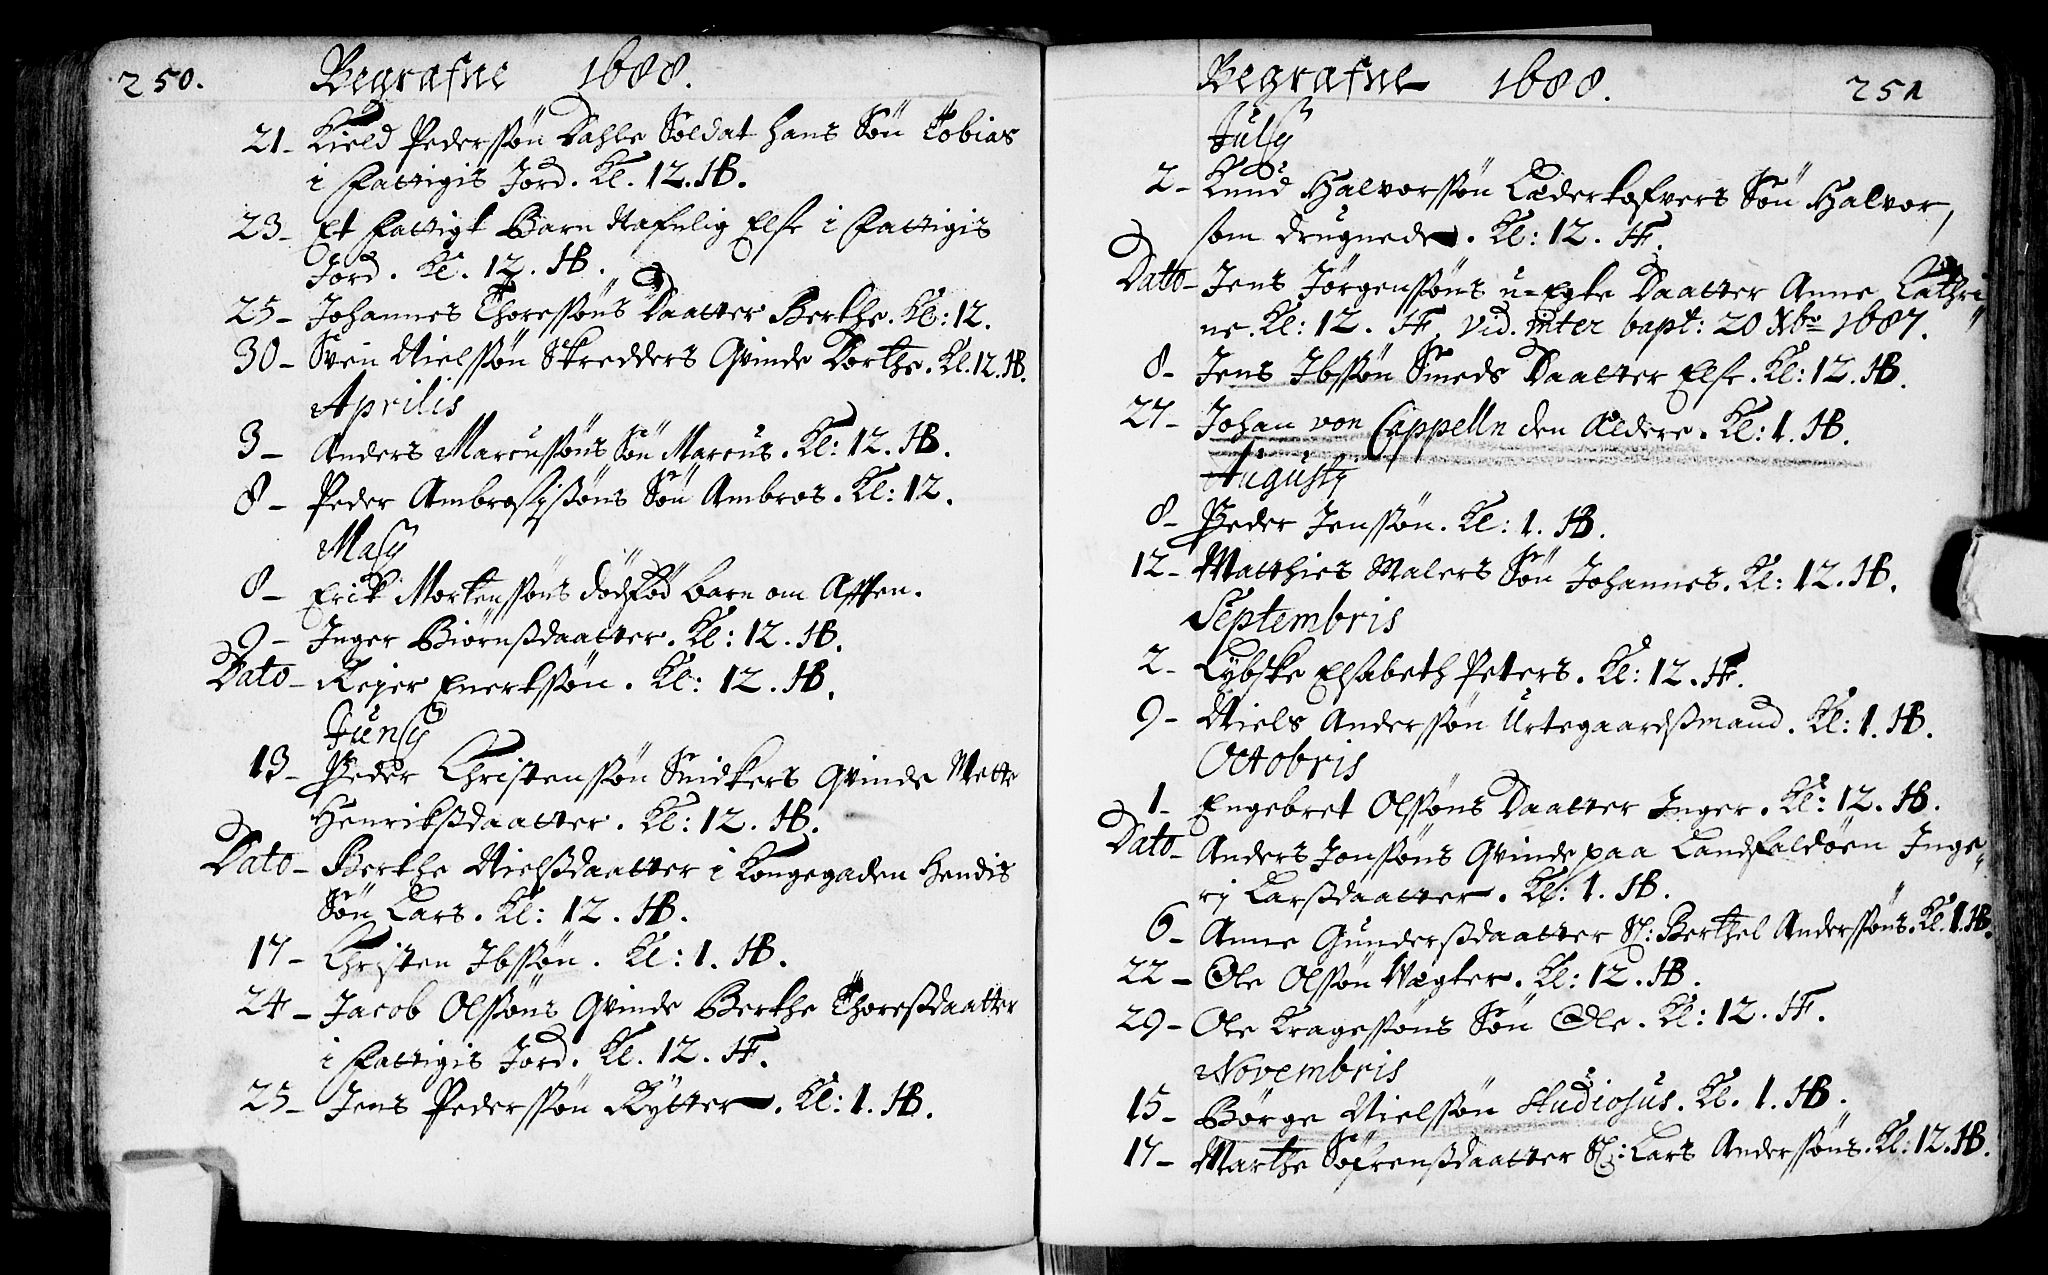 250. Begrafne 1688.
21- Kield Pederssøn Dahle Soldat hans Søn Tobias
i Fattigis Jord. Kl. 12. HB.
23- Et Fattigt Barn Nafnlig Else i Fattigis
Jord. Kl. 12. HB.
25- Johannes Thoressøns Daatter Berthe. Kl: 12.
30- Sven Nielssøn Skredders Qvinde Dorthe. Kl. 12. HB.
Aprilis
3- Anders Marcussøns Søn Marcus. Kl: 12. HB.
8- Peder Ambrosijssøns Søn Ambros. Kl: 12.
Maij
8- Erick Mortenssøns dødfød barn om Afften.
9- Inger Biørnsdaatter. Kl: 12. HB.
Dato- Rejer Enerkssøn. Kl: 12. HB.
Junij
13- Peder Christenssøn Snidkers Qvinde Mette
Henriksdaatter. Kl: 12. HB.
Dato- Berthe Nielsdaatter i Kongegaden hendis
Søn Lars. Kl: 12. HB.
17- Christen Ibssøn. Kl: 1. HB.
24- Jacob Olssøns Qvinde Berthe Thoresdaatter
i Fattigis Jord. Kl. 12. HF.
25- Jens Pederssøn Rytter. Kl: 1. HB.
Begrafne 1688. 251
Julij
2- Knud Halvorssøn Læderkofvers Søn Halvor,
som drugnede. Kl: 12. HF.
Dato- Jens Jørgenssøns u-Egte Daatter Anne Cathri
ne. Kl: 12. HF. vid. inter bapt: 20 Xbr 1687.
8- Jens Ibssøn Smeds Daatter Else. Kl: 12. HB.
27- Johan von Cappelln den Ældere. Kl: 1. HB.
Augustj
8- Peder Jenssøn. Kl: 1. HB.
12- Matthies Malers Søn Johannes. Kl: 12. HB.
Septembris
2- Lybske Elsabeth Peters. Kl: 12. HF.
9- Niels Anderssøn Urtegaardsmand. Kl: 1. HB.
Octobris
1- Engebret Olssøns Daatter Inger. Kl: 12. HB.
Dato- Anders Jonssøns Qvinde paa Landfaldøen Inge
rj Larsdaatter. Kl: 1. HB.
6- Anne Gundersdaatter Sl: Berthel Anderssøns. Kl. 1. HB.
22- Ole Olssøn Vægter. Kl: 12. HB.
29- Ole Kragessøns Søn Ole. Kl: 12. HF.
Novembris
15- Børge Nielssøn Studiosus. Kl. 1. HB.
17- Marthe Sørrensdaatter Sl: Lars Anderssøns. Kl: 12. HB.